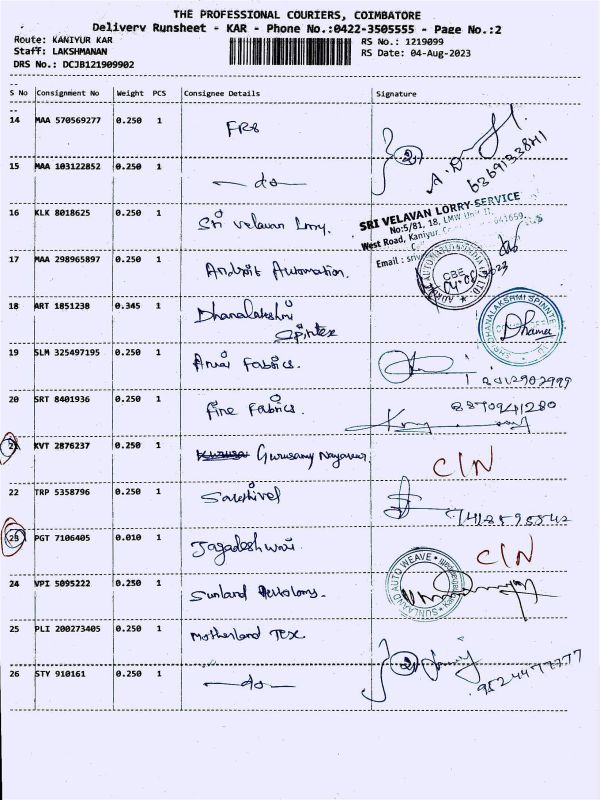 THE PROFESSIONAL COURIERS, COIMBATORE
Delivery Runsheet - KAR - Phone No.:0422-3505555 - Page No.:2
Route: KANIYUR KAR
RS No.: 1219099
Staff: LAKSHMANAN
RS Date: 04-Aug-2023
DRS No.: DCJB121909902
S No Consignment No Weight PCS Consignee Details Signature
14 MAA 570569277 0.250 1
15 MAA 103122852 0.250 1 — do —
16 KLK 8018625 0.250 1 Sri Velavan Lorry.
SRI VELAVAN LORRY SERVICE
No:5/81, 18, LMW Unit II,
West Road, Kaniyur,
Email :
17 MAA 298965897 0.250 1 Automation.
CBE
18 ART 1851238 0.345 1 Dhanalakshmi
Spintex
19 SLM 325497195 0.250 1 Fabrics.
20 SRT 8401936 0.250 1 Fine Fabrics.
8870941280
21 KVT 2876237 0.250 1 Gurusamy
CIN
22 TRP 5358796 0.250 1 Sakthivel
23 PGT 7106405 0.010 1 Jagadeshwari
CIN
24 VPI 5095222 0.250 1 Sunland
SUNLAND AUTO WEAVE
25 PLI 200273405 0.250 1 Motherland Tex.
26 STY 910161 0.250 1 — do —
2